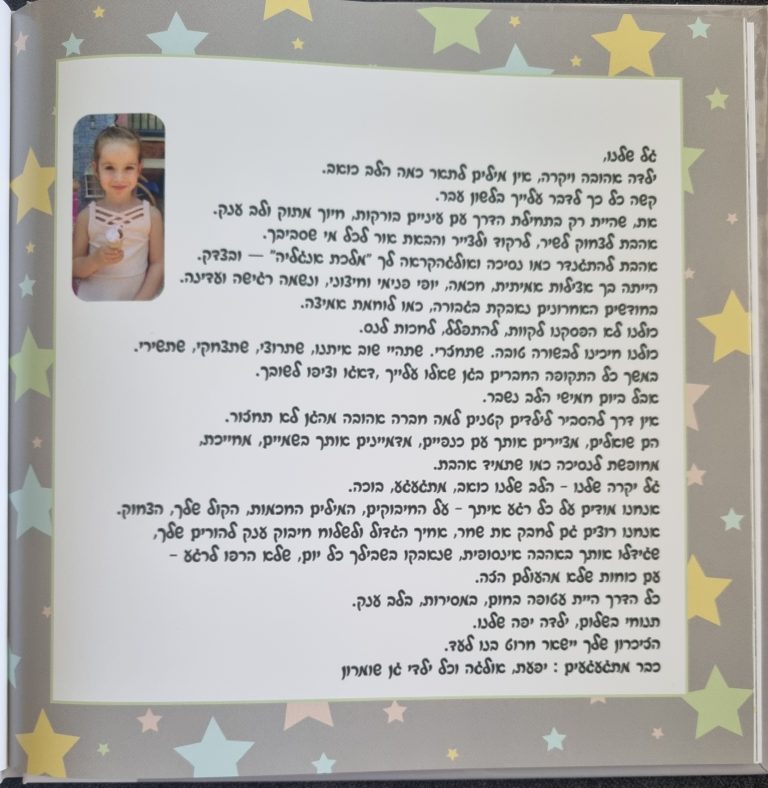 גל שלנו,
ילדה אהובה ויקרה, אין מילים לתאר כמה הלב כואב.
קשה כל כך לדבר עלייך בלשון עבר.
את, שהיית רק בתחילת הדרך עם עיניים בורקות, חיוך מתוק ולב ענק.
אהבת לצחוק לשיר, לרקוד ולצייר והבאת אור לכל מי שסביבך.
אהבת להתגנדר כמו נסיכה ואולגהקראה לך "מלכת אנגליה" — ובצדק.
הייתה בך אצילות אמיתית, חכמה, יופי פנימי וחיצוני, ונשמה רגישה ועדינה.
בחודשים האחרונים נאבקת בגבורה, כמו לוחמת אמיצה.
כולנו לא הפסקנו לקוות, להתפלל, לחכות לנס.
כולנו חיכינו לבשורה טובה. שתחזרי. שתהיי שוב איתנו, שתרוצי, שתצחקי, שתשירי.
במשך כל התקופה החברים בגן שאלו עלייך ,דאגו וציפו לשובך.
אבל ביום חמישי הלב נשבר.
אין דרך להסביר לילדים קטנים למה חברה אהובה מהגן לא תחזור.
הם שואלים, מציירים אותך עם כנפיים, מדמיינים אותך בשמיים, מחייכת,
מחופשת לנסיכה כמו שתמיד אהבת.
גל יקרה שלנו - הלב שלנו כואב, מתגעגע, בוכה.
אנחנו מודים על כל רגע איתך - על החיבוקים, המילים החכמות, הקול שלך, הצחוק.
אנחנו רוצים גם לחבק את שחר, אחיך הגדול ולשלוח חיבוק ענק להורים שלך,
שגידלו אותך באהבה אינסופית, שנאבקו בשבילך כל יום, שלא הרפו לרגע -
עם כוחות שלא מהעולם הזה.
כל הדרך היית עטופה בחום, במסירות, בלב ענק.
תנוחי בשלום, ילדה יפה שלנו.
הזיכרון שלך יישאר חרוט בנו לעד.
כבר מתגעגעים : יפעת, אולגה וכל ילדי גן שומרון